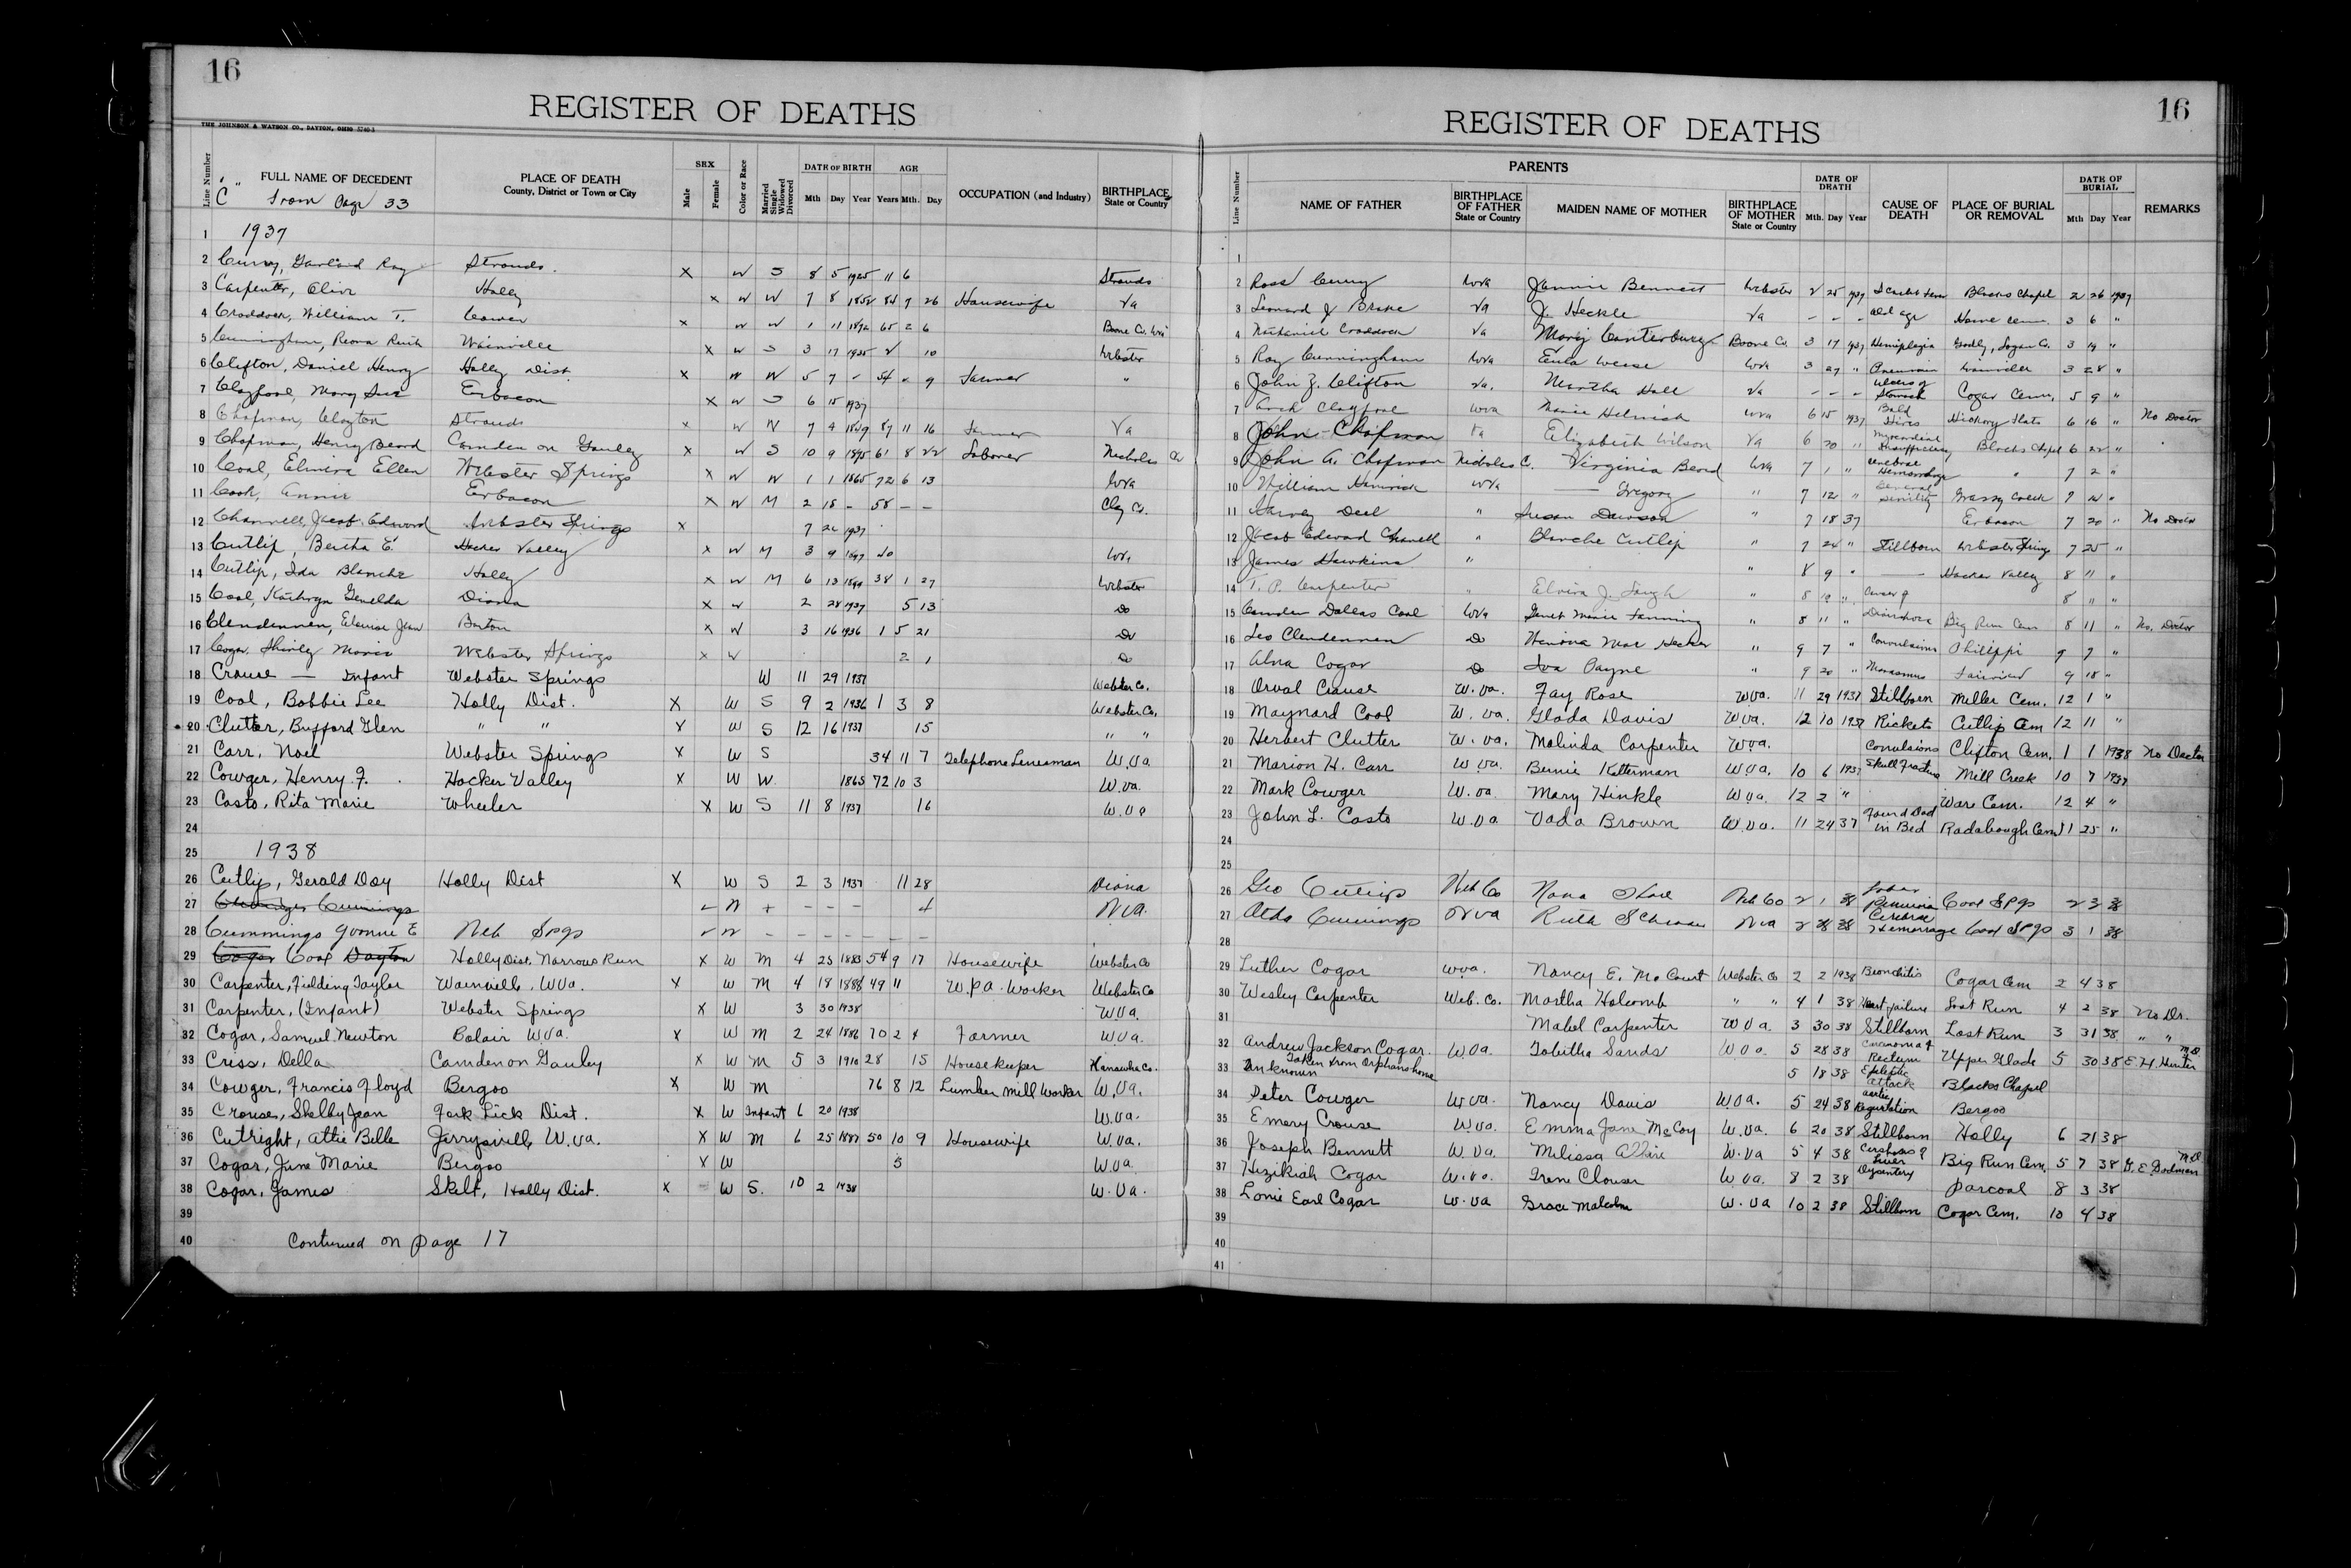 16
REGISTER OF DEATHS
THE JOHNSON & WATSON CO., DAYTON, OHIO
Line Number FULL NAME OF DECEDENT PLACE OF DEATH County, District or Town or City SEX Male Female Color or Race Married Single Widowed Divorced DATE OF BIRTH Mth Day Year AGE Years Mth. Day OCCUPATION (and Industry) BIRTHPLACE State or Country
"C" From Page 33
1 1937
2 Curry, Garland Ray Strouds. X W S 8 5 1925 11 6 Strouds
3 Carpenter, Olive Holly X W W 7 8 26 Housewife Va
4 Craddock, William T. Cowen X W W 1 11 65 2 6 Boone Co. Wva
5 Cunningham, Reona Ruth Wainville X W S 3 17 1935 2 10 Webster
6 Clifton, Daniel Henry Holly Dist. X W W 5 7 - 54 - 9 Farmer "
7 Claypool, Mary Sue Erbacon X W S 6 15 1937
8 Chapman, Clayton Strouds X W W 7 4 1849 87 11 16 Farmer Va
9 Chapman, Henry Beard Camden on Gauley X W S 10 9 1875 61 8 22 Laborer Nicholas Co
10 Cool, Elmira Ellen Webster Springs X W W 1 1 1865 72 6 13 Wva
11 Cook, Annie Erbacon X W M 2 18 - 58 - - Clay Co.
12 Channell, Jacob Edward Webster Springs X 7 24 1937
13 Cutlip, Bertha E. Hacker Valley X W M 3 9 1897 40 Wva
14 Cutlip, Ida Blanche Holly X W M 6 13 1899 38 1 27 Webster
15 Cool, Kathryn Genelda Diana X W 2 28 1937 5 13 Do
16 Clendennen, Eloise Jean Bolton X W 3 16 1936 1 5 21 Do
17 Cogar, Shirley Marie Webster Springs X W 2 1 Do
18 Crouse — Infant Webster Springs W 11 29 1937 Webster Co.
19 Cool, Bobbie Lee Holly Dist. X W S 9 2 1936 1 3 8 Webster Co.
20 Clutter, Bufford Glen " " X W S 12 16 1937 15 " "
21 Carr, Noel Webster Springs X W S 34 11 7 Telephone Linesman W.Va
22 Cowger, Henry F. Hacker Valley X W W. 1865 72 10 3 W.va.
23 Casto, Rita Marie Wheeler X W S 11 8 1937 16 W.Va
24
25 1938
26 Cutlip, Gerald Day Holly Dist X W S 2 3 1937 11 28 Diana
27 Cummings - W + - - - 4 W Va.
28 Cummings Yvonne E Web Spgs - W - - - - - -
29 Cogar Cool Dayton Holly Dist. Narrows Run X W M 4 25 1883 54 9 17 Housewife Webster Co
30 Carpenter, Fielding Taylor Wainville, W.Va. X W M 4 18 1888 49 11 W.P.A. Worker Webster Co
31 Carpenter, (Infant) Webster Springs X W 3 30 1938 W.Va.
32 Cogar, Samuel Newton Bolair W.Va. X W M 2 24 70 2 4 Farmer W.Va.
33 Criss, Della Camden on Gauley X W M 5 3 1910 28 15 Housekeeper Kanawha Co.
34 Cowger, Francis Floyd Bergoo X W M 76 8 12 Lumber Mill Worker W.Va.
35 Crouse, Shelby Jean Fork Lick Dist. X W Infant 6 20 1938 W.va.
36 Cutright, Attie Belle Jerrysville W.va. X W M 6 25 1887 50 10 9 Housewife W.Va.
37 Cogar, June Marie Bergoo X W 5 W.Va.
38 Cogar, James Skelt, Holly Dist. X W S. 10 2 1938 W.Va.
39
40 Continued on page 17
16
REGISTER OF DEATHS
Line Number PARENTS NAME OF FATHER BIRTHPLACE OF FATHER State or Country MAIDEN NAME OF MOTHER BIRTHPLACE OF MOTHER State or Country DATE OF DEATH Mth. Day Year CAUSE OF DEATH PLACE OF BURIAL OR REMOVAL DATE OF BURIAL Mth Day Year REMARKS
1
2 Ross Curry Wva Jennie Bennett Webster 2 25 1937 Scarlet Fever Blacks Chapel 2 26 1937
3 Leonard J Brake Va J. Heckle Va - - - Old age Home Cem. 3 6 "
4 Nathaniel Craddock Va Mary Canterbury Boone Co 3 17 1937 Hemiplegia Logan Co. 3 19 "
5 Roy Cunningham Wva Eula Weese Wva 3 27 " Pneumonia Wainville 3 28 "
6 John Z. Clifton Va. Martha Hall Va - - - Ulcers of Stomach Cogar Cem. 5 9 "
7 Arch Claypool Wva Marie Helmick Wva 6 15 1937 Hickory Flats 6 16 " No Doctor
8 John Chapman Va Elizabeth Wilson Va 6 20 " Myocardial Insufficiency Blacks Chapel 6 22 "
9 John A. Chapman Nicholas C. Virginia Beard Wva 7 1 " Cerebral Hemorrhage " 7 2 "
10 William Hamrick Wva — Gregory " 7 12 " General Senility Grassy Creek 7 14 "
11 Harvey Deel " Susan Dawson " 7 18 37 Erbacon 7 20 " No Doctor
12 Jacob Edward Channell " Blanche Cutlip " 7 24 " Stillborn Webster Springs 7 25 "
13 James Hawkins " " 8 9 " — Hacker Valley 8 11 "
14 T. P. Carpenter " Elvira J. " 8 10 " Cancer of 8 11 "
15 Camden Dallas Cool Wva Janet Marie Fanning " 8 11 " Diarrhoea Big Run Cem 8 11 " No. Doctor
16 Leo Clendennen Do Wenona Mae Hacker " 9 7 " Convulsions Philippi 9 7 "
17 Alva Cogar Do Iva Payne " 9 20 " Marasmus Fairview 9 18 "
18 Orval Crouse W.Va. Fay Rose W.Va. 11 29 1937 Stillborn Miller Cem. 12 1 "
19 Maynard Cool W.va. Glada Davis W.Va. 12 10 1937 Rickets Cutlip Cem 12 11 "
20 Herbert Clutter W.va. Malinda Carpenter W.va. Convulsions Clifton Cem. 1 1 1938 No Doctor
21 Marion H. Carr W.Va. Bernie Ketterman W.Va. 10 6 1937 Skull Fracture Mill Creek 10 7 1937
22 Mark Cowger W.va. Mary Hinkle W.Va. 12 2 " Ware Cem. 12 4 "
23 John L. Casto W.Va Vada Brown W.Va. 11 24 37 Found Dead in Bed Radabough Cem 11 25 "
24
25
26 Geo Cutlip Web Co Nona Web Co 2 1 38 Lobar Pneumonia Cool Spgs 2 3 38
27 Cummings W Va Ruth W Va 2 28 38 Cerebral Hemorrage Cool Spgs 3 1 38
28
29 Luther Cogar W.va. Nancy E. McCourt Webster Co 2 2 1938 Bronchitis Cogar Cem 2 4 38
30 Wesley Carpenter Web. Co. Martha Holcomb " " 4 1 38 Heart failure Lost Run 4 2 38 No Dr.
31 Mabel Carpenter W.Va. 3 30 38 Stillborn Lost Run 3 31 38 " "
32 Andrew Jackson Cogar. W.Va. Tabitha Sands W.Va. 5 28 38 Carcinoma of Rectum Upper Glade 5 30 38 E.H. Hunter M.D.
33 Unknown Taken from Orphans home 5 18 38 Epileptic attack Blacks Chapel
34 Peter Cowger W.va. Nancy Davis W.Va. 5 24 38 Bergoo
35 Emory Crouse W.Va. Emma Jane McCoy W.va. 6 20 38 Stillborn Holly 6 21 38
36 Joseph Bennett W.Va. Melissa W.Va 5 4 38 Liver Big Run Cem. 5 7 38 M.D.
37 Hezikiah Cogar W.Va. Irene Clouser W.Va. 8 2 38 Dysentery Parcoal 8 3 38
38 Lonie Earl Cogar W.Va Grace Malcolm W.Va 10 2 38 Stillborn Cogar Cem. 10 4 38
39
40
41